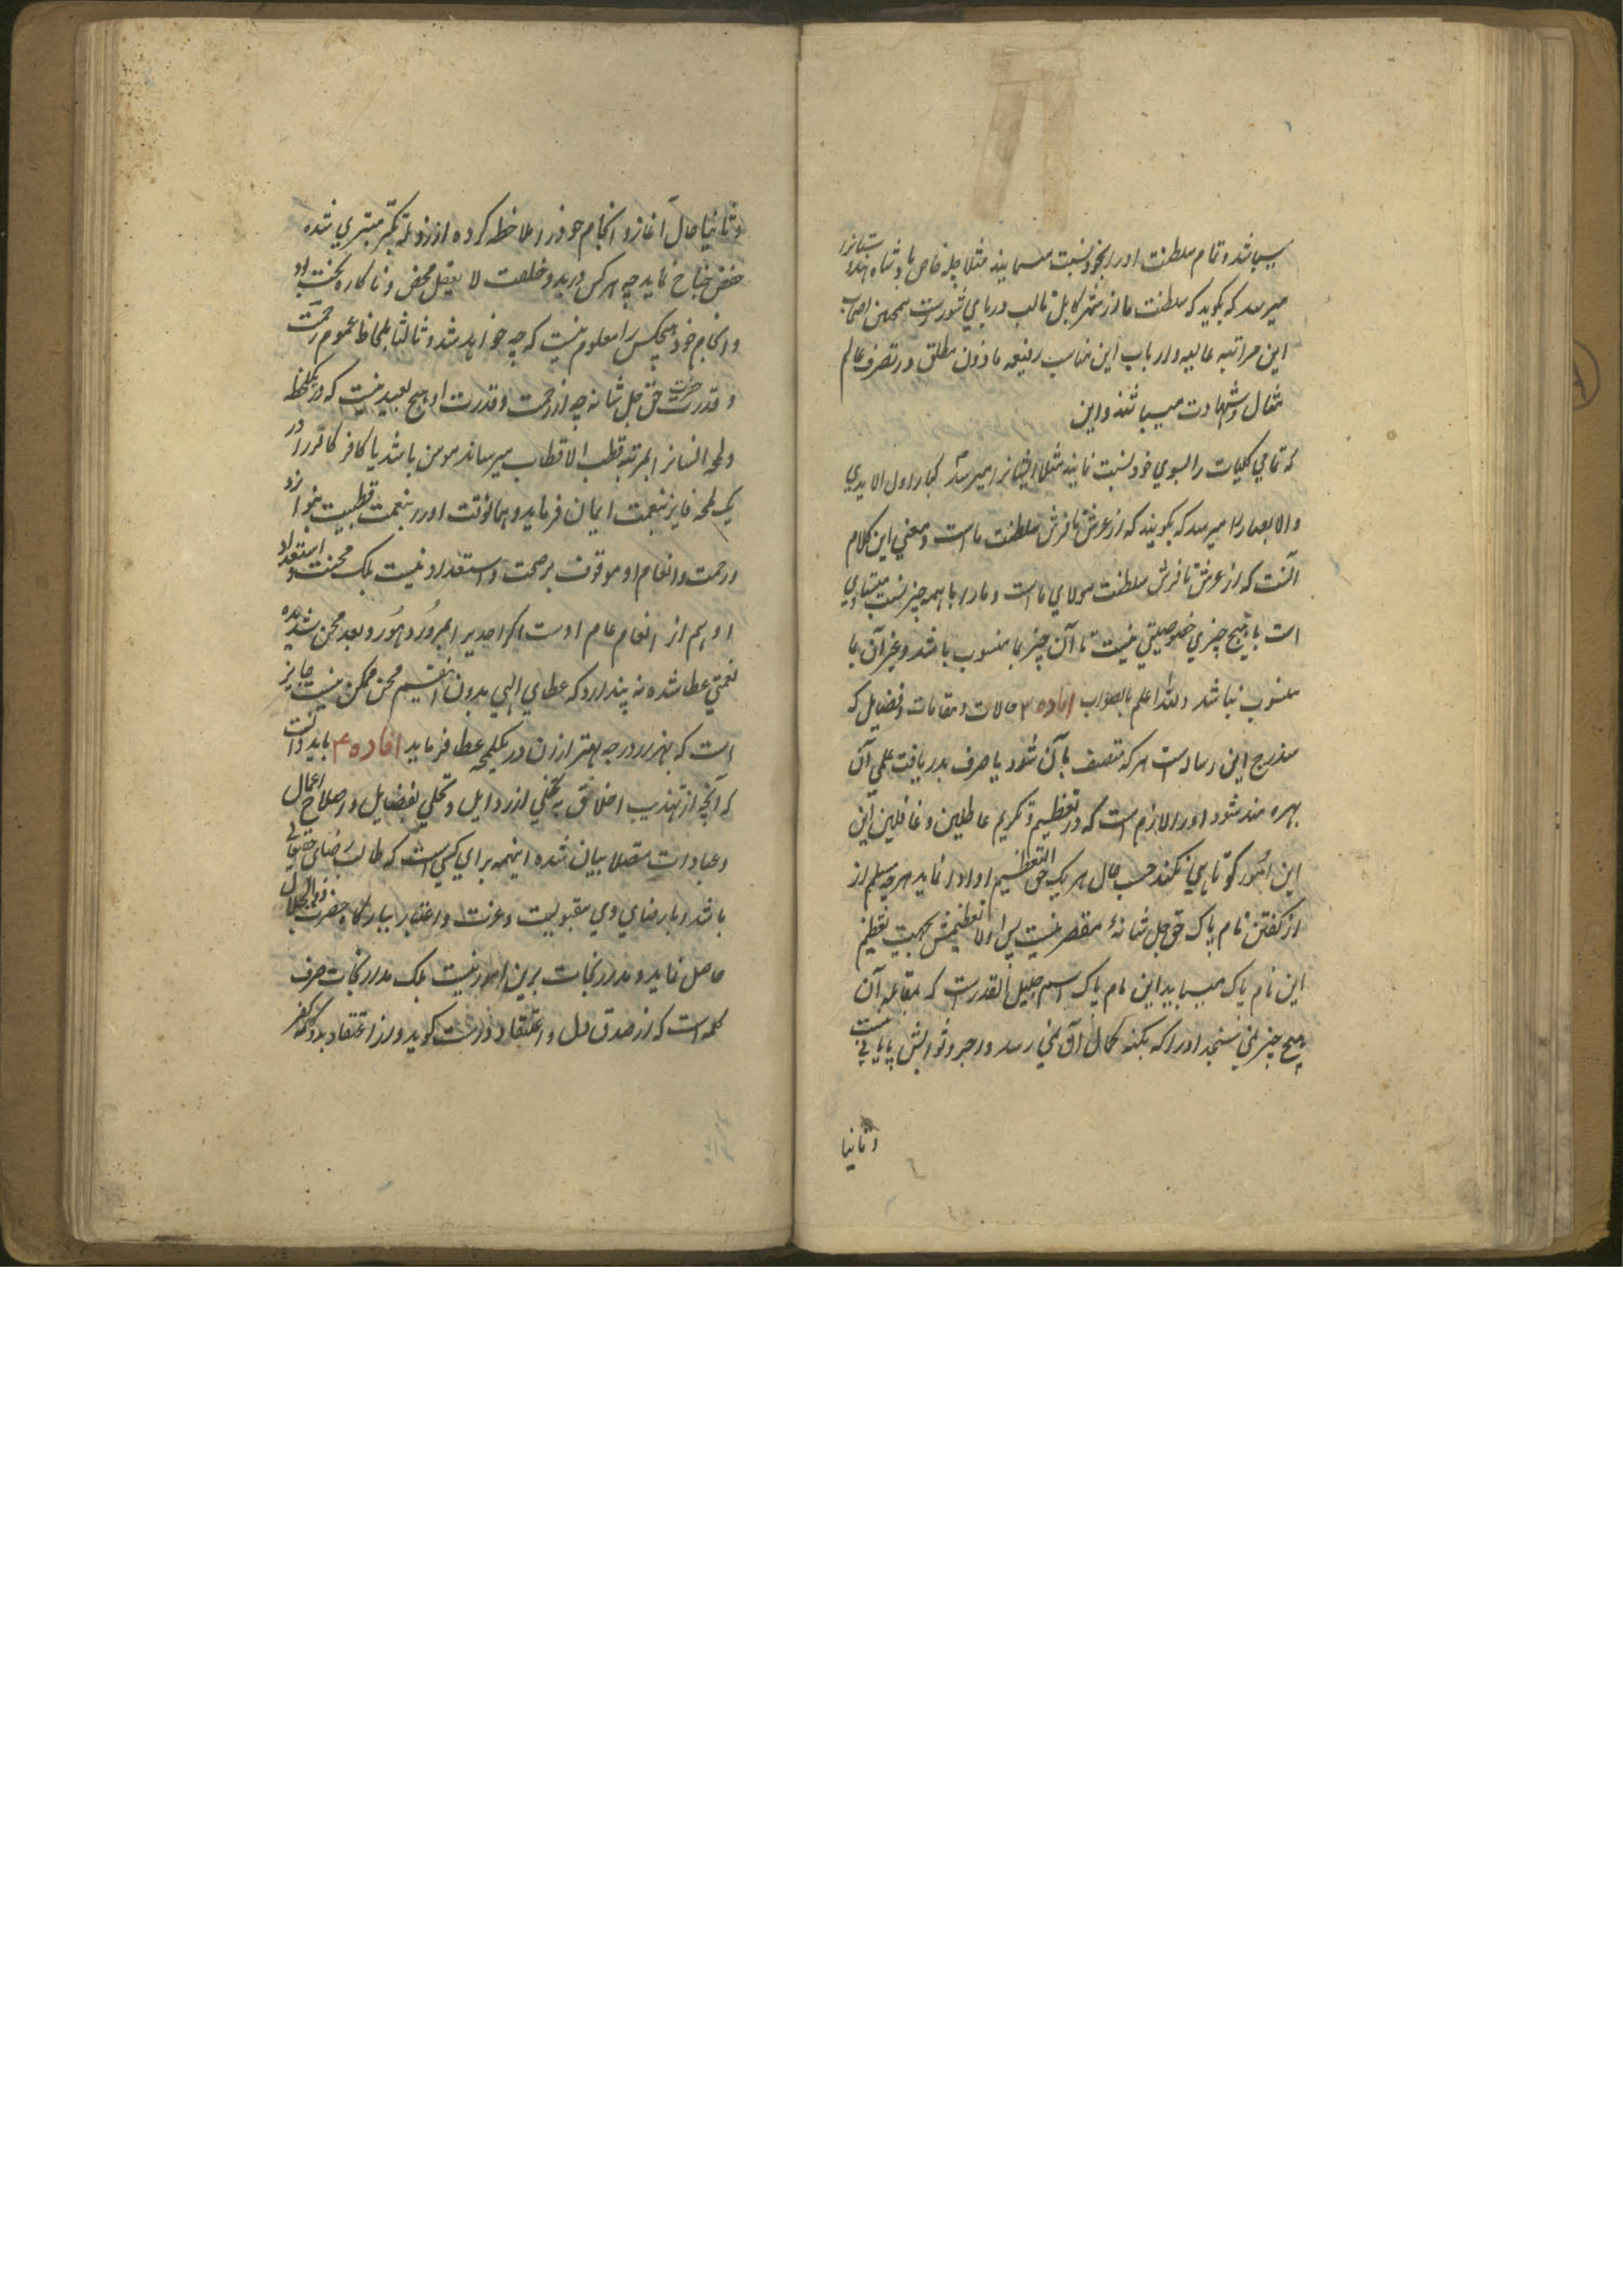 میباشد و تمام سلطنت او را بخود نسبت مینمایند مثلا چله خاص بادشاه هندوستانرا
میرسد که بگوید که سلطنت ما از شهر کابل تا لب دریای شورست همچنین اصحاب
این مراتب عالیه و ارباب این مناصب رفیعه ماذون مطلق در تصرف عالم
مثال و شهادت میباشند و این
که تمامی کلیات را بسوی خود نسبت نمایند مثلا ایشانرا میرسد کبار اولی الایدی
والابصار را میرسد که بگویند که از عرش تا فرش سلطنت ما است و معنی این کلام
آنست که از عرش تا فرش سلطنت مولای ما است و ما را با همه چیز نسبت متساوی
است با هیچ چیزی خصوصیتی نیست تا آن چیز بما منسوب باشد و غیر آن بما
منسوب نباشد والله اعلم بالصواب افاده ۳ حالات و مقامات و فضایل که
مندرج این رساله است هر که متصف بآن شود یا صرف بدریافت علمی آن
بهره مند شود او را لازم است که در تعظیم و تکریم عاطلین و غافلین این
این امور کوتاهی نکند حسب حال هر یک حق التعظیم او ادا نماید هر چه مسلم از
از گفتن نام پاک حق جل شانه مقصر نیست پس اولا تعظیمش بجهت تعظیم
این نام پاک میباید این نام پاک اسم جلیل القدرست که بمقابله آن
هیچ چیز نمی سنجد ادراکه بکنه کمال آن نمی رسد و اجر و ثوابش پایانی نیست
وثانیا
وثانیا حال آغاز و انجام خود را ملاحظه کرده از رذیله تکبر متبری شده
خفض جناح نماید چه هر کس در بدو خلقت لا یعقل محض و ناکاره بخت بود
و انجام خود هیچکس را معلوم نیست که چه خواهد شد و ثالثا بلحاظ عموم رحمت
و قدرت حضرت حق جل شانه چه از رحمت و قدرت او هیچ بعید نیست که در یکلحظه
و لمحه انسانرا بمرتبه قطب الاقطاب میرساند مومن باشد یا کافر کافر را در
یک لمحه فایز بنعمت ایمان فرماید و همانوقت او را بنعمت قطبیت بنوازد
و رحمت و انعام او موقوف بر صحت و استعداد نیست بلک محنت و استعداد
او هم از انعام عام اوست اگر احدیرا بمرور دهور و بعد محن شدیده
نعمتی عطا شده نه پندارد که عطای الهی بدون اینقسم محن ممکن نیست جایز
است که بهزار درجه بهتر ازان در یکلمحه عطا فرماید افاده ۴ باید دانست
که آنچه از تهذیب اخلاق به تخلی از رذایل و تحلی بفضایل و اصلاح اعمال
و عبادات متصلا بیان شده اینهمه برای کسی است که طالب رضای حقیقی
باشد و با رضای وی مقبولیت و عزت و اعتبار ببارگاه حضرت ذوالجلال
حاصل نماید و مدار نجات برین امور نیست بلک مدار نجات صرف
کلمه است که از صدق دل و اعتقاد درست گوید و از اعتقاد بد و کلمه کفر